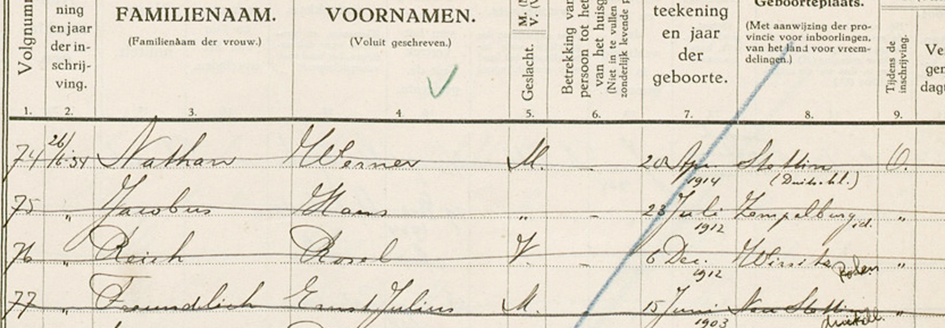 Volgnummer
ning en jaar der inschrijving.
FAMILIENAAM.
(Familienaam der vrouw.)
VOORNAMEN.
(Voluit geschreven.)
Geslacht. M. V.
Betrekking van persoon tot het van het huisg (Niet in te vullen zonderlijk levende p
teekening en jaar der geboorte.
Geboorteplaats.
(Met aanwijzing der provincie voor inboorlingen, van het land voor vreemdelingen.)
Tijdens de inschrijving.
Ve gen dag
1. 2. 3. 4. 5. 6. 7. 8. 9.
74 26/6-34 Nathan Werner M. - 20 Apr. 1914 Stettin (Duitschl.) O.
75 " Jacobus Hans " - 23 Juli 1912 Zempelburg id. "
76 " Reich Rosel V. - 6 Dec. 1912 Polen "
77 " Freundlich Ernst Julius M. 15 Juni 1903 Neu Stettin "